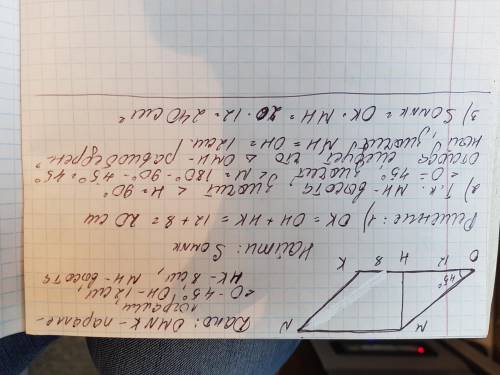 Дано: OMNK - паралле-
лограмм
∠O - 45°, OH - 12 см,
HK - 8 см, MH - высота
Найти: SOMNK
Решение: 1) OK = OH + HK = 12 + 8 = 20 см
2) Т.к. MH - высота, значит ∠H = 90°
∠O = 45°, значит, ∠M = 180° - 90° - 45° = 45°
отсюда следует, что △OMH - равнобедрен-
ный, значит MH = OH = 12 см.
3) SOMNK = OK · MH = 20 · 12 = 240 см²
M
N
45°
O
12
H
8
K